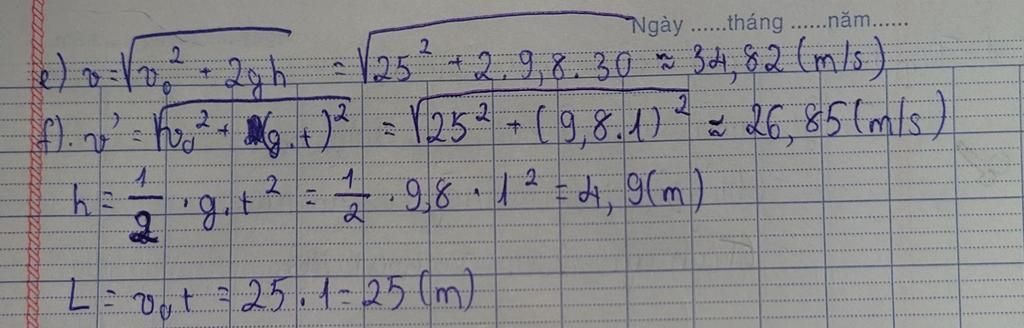 Ngày ......tháng ......năm......
e) v = √(v₀² + 2gh) = √(25² + 2. 9,8. 30) ≈ 34,82 (m/s)
f). v' = √(v₀² + (g.t)²) = √(25² + (9,8.1)²) ≈ 26,85 (m/s)
h = 1/2 . g.t² = 1/2 . 9,8 . 1² = 4,9 (m)
L = v₀t = 25.1 = 25 (m)